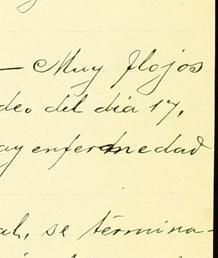 — Muy flojos
deo del dia 17,
ay enfermedad
al, se termina-